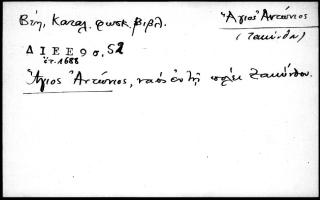 Βέη, Καταλ. φωτκ. βιβλ.
Ἅγιος Ἀντώνιος
(Ζακύνθου)
ΔΙΕΕ 9 σ. 52
ἔτ. 1688
Ἅγιος Ἀντώνιος, ναὸς ἐν τῇ πόλει Ζακύνθου.